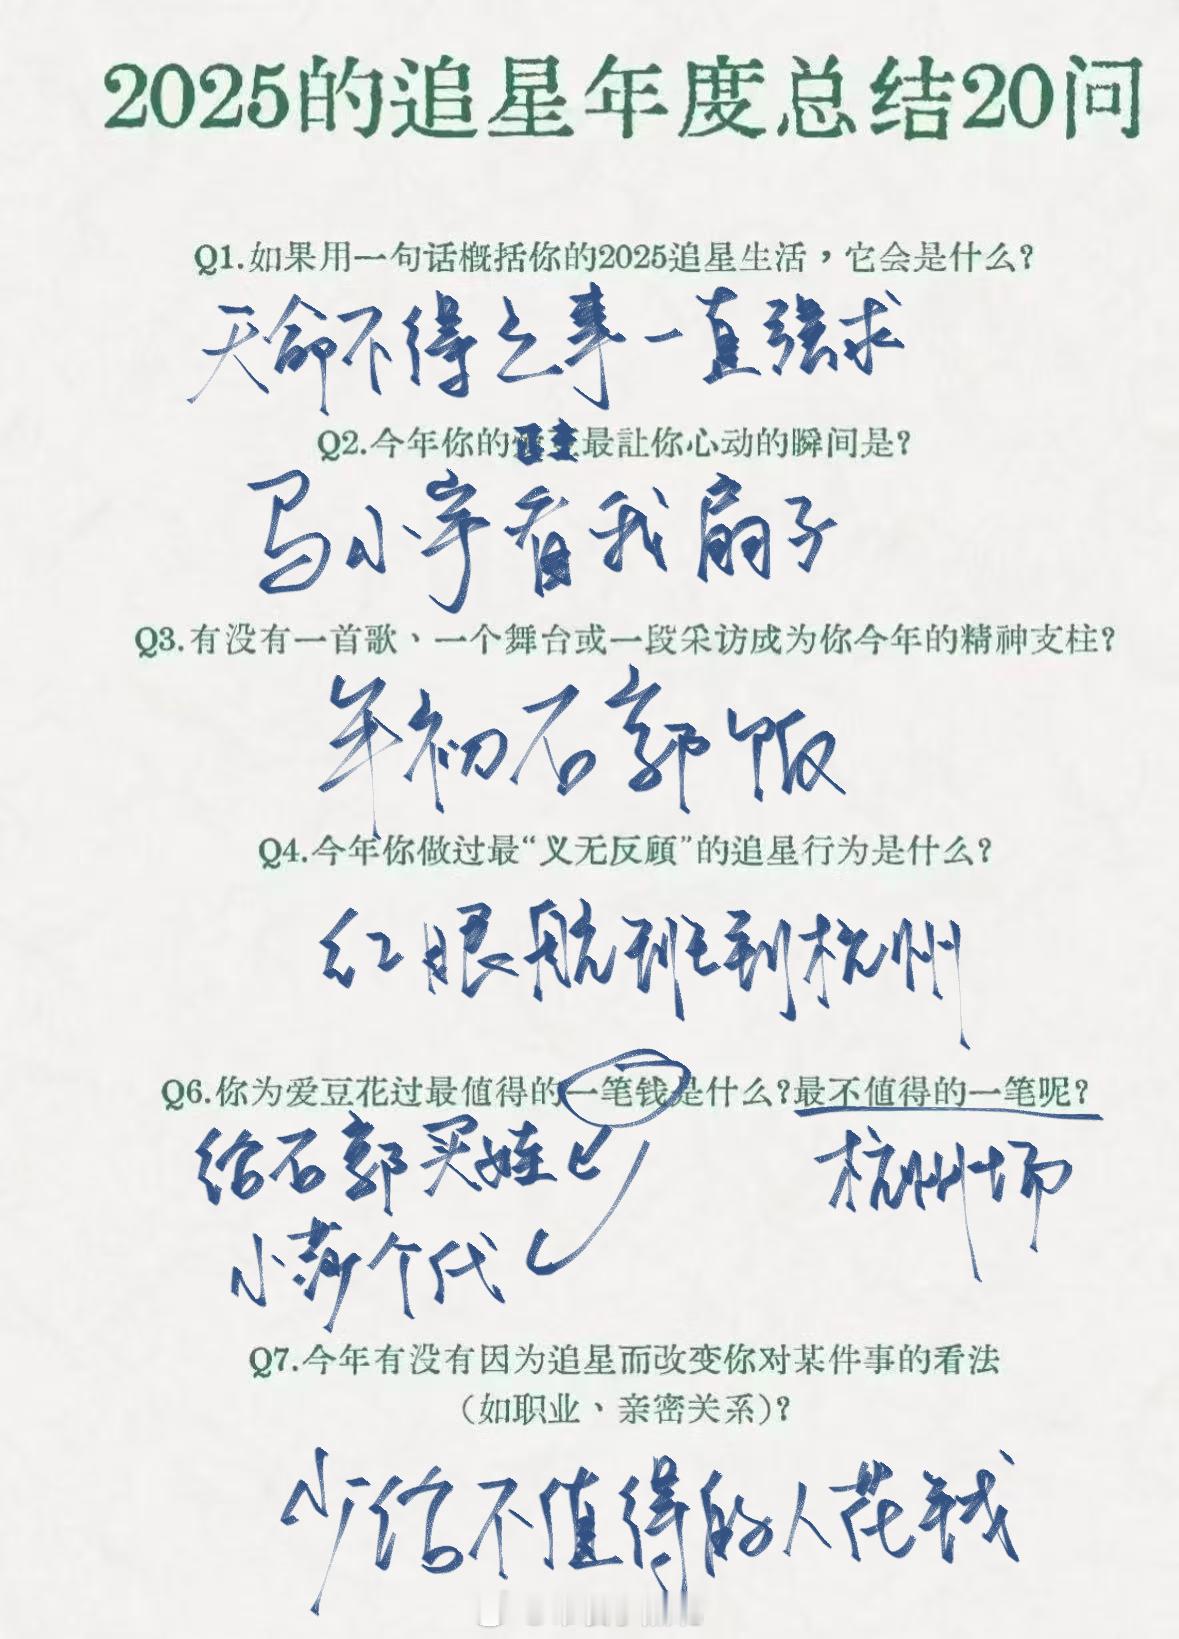 2025的追星年度总结20问
Q1.如果用一句话概括你的2025追星生活，它会是什么？
天命不得之事一直强求
Q2.今年你的最让你心动的瞬间是？
马小宇看我扇子
Q3.有没有一首歌、一个舞台或一段采访成为你今年的精神支柱？
年初石郭饭
Q4.今年你做过最“义无反顾”的追星行为是什么？
红眼航班到杭州
Q6.你为爱豆花过最值得的一笔钱是什么？最不值得的一笔呢？
给石郭买娃
杭州场
小莎个代
Q7.今年有没有因为追星而改变你对某件事的看法
（如职业、亲密关系）？
少给不值得的人花钱